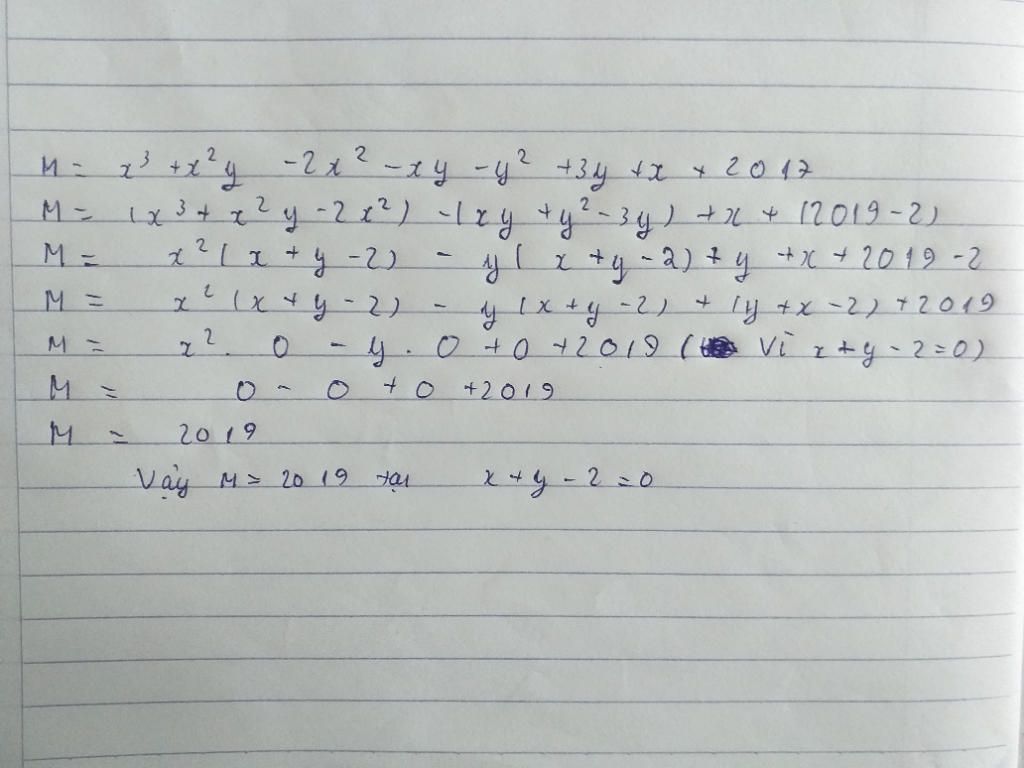 M = x³ + x²y - 2x² - xy - y² + 3y + x + 2017
M = (x³ + x²y - 2x²) - (xy + y² - 3y) + x + (2019 - 2)
M = x²(x + y - 2) - y(x + y - 2) + y + x + 2019 - 2
M = x²(x + y - 2) - y(x + y - 2) + (y + x - 2) + 2019
M = x². 0 - y. 0 + 0 + 2019 ( Vì x + y - 2 = 0)
M = 0 - 0 + 0 + 2019
M = 2019
Vậy M = 2019 tại x + y - 2 = 0